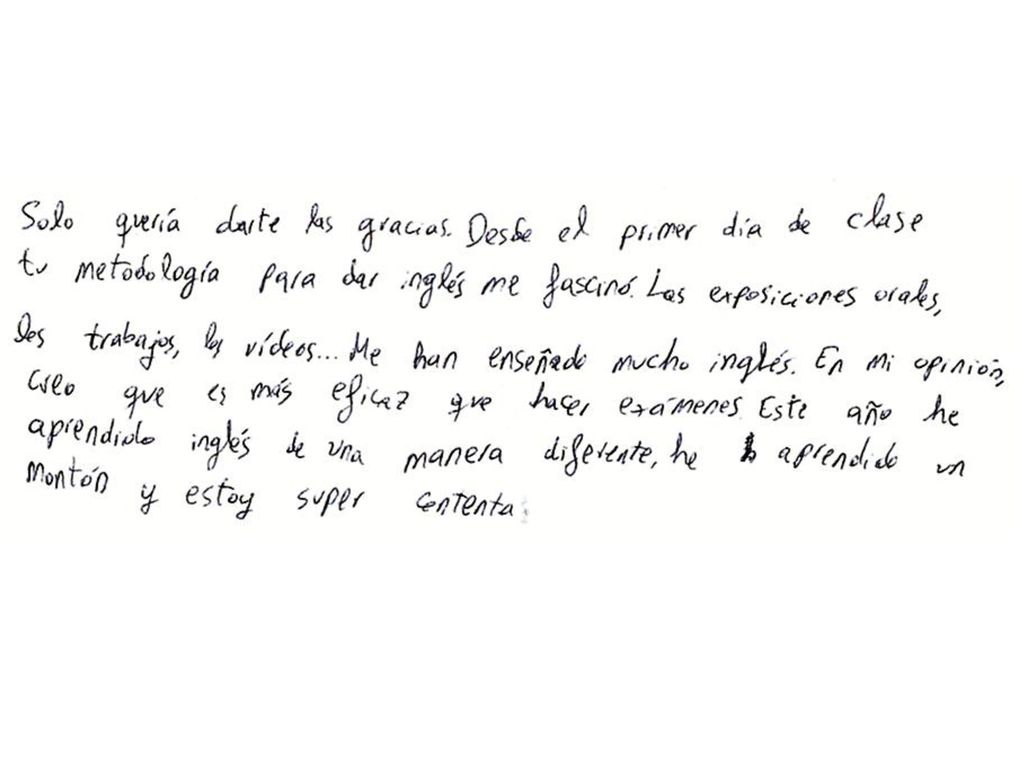 Solo quería darte las gracias. Desde el primer día de clase
tu metodología para dar inglés me fascinó. Las exposiciones orales,
los trabajos, los vídeos... Me han enseñado mucho inglés. En mi opinión,
creo que es más eficaz que hacer exámenes. Este año he
aprendido inglés de una manera diferente, he aprendido un
montón y estoy super contenta.